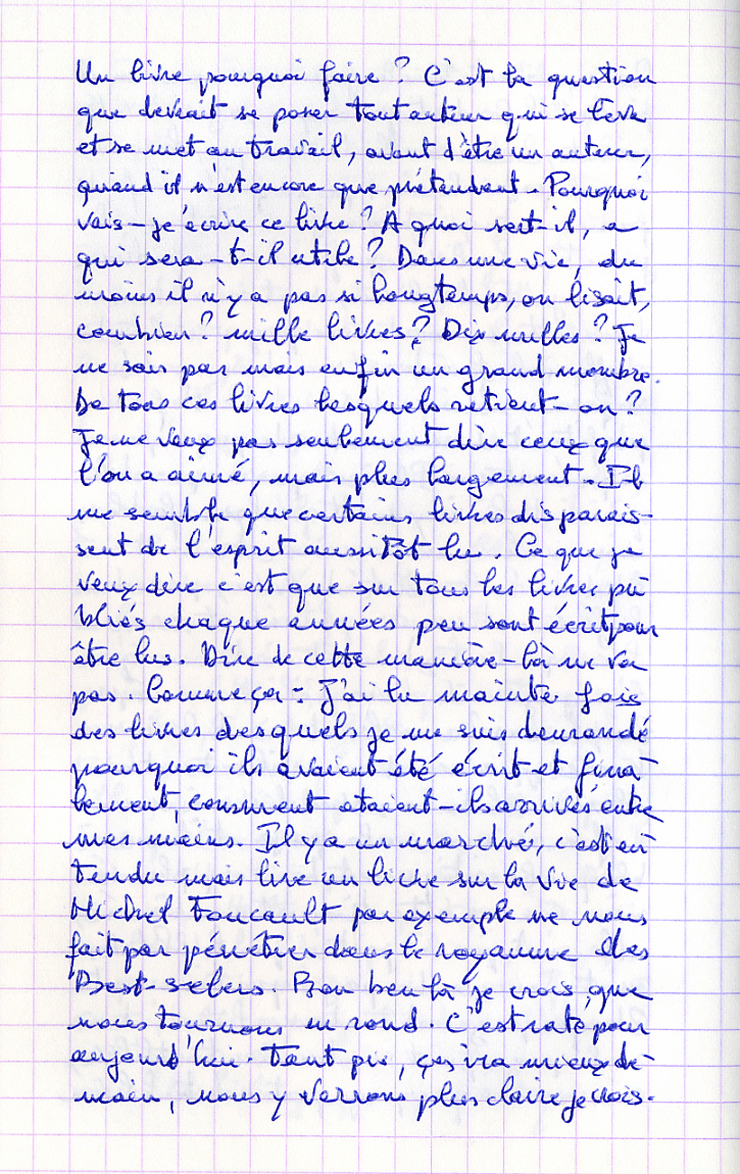 Un livre pourquoi faire ? C'est la question
que devrait se poser tout auteur qui se lève
et se met au travail, avant d'être un auteur,
quand il n'est encore que prétendant. Pourquoi
vais-je écrire ce livre ? A quoi sert-il, a
qui sera-t-il utile ? Dans une vie, du
moins il n'y a pas si longtemps, on lisait,
combien ? mille livres ? Dix milles ? Je
ne sais pas mais enfin un grand nombre.
De tous ces livres lesquels retient-on ?
Je ne veux pas seulement dire ceux que
l'on a aimé, mais plus largement. Il
me semble que certains livres disparais-
sent de l'esprit aussitôt lu. Ce que je
veux dire c'est que sur tous les livres pu-
bliés chaque années peu sont écrit pour
être lus. Dire de cette manière-là ne va
pas. Comme ça : J'ai lu mainte fois
des livres desquels je me suis demandé
pourquoi ils avaient été écrit et fina-
lement, comment étaient-ils arrivés entre
mes mains. Il y a un marché, c'est en-
tendu mais lire un livre sur la vie de
Michel Foucault par exemple ne nous
fait pas pénétrer dans le royaume des
Best-sellers. Bon ben là je crois que
nous tournons en rond. C'est raté pour
aujourd'hui. Tant pis, ça ira mieux de-
main, nous y verrons plus claire je crois.